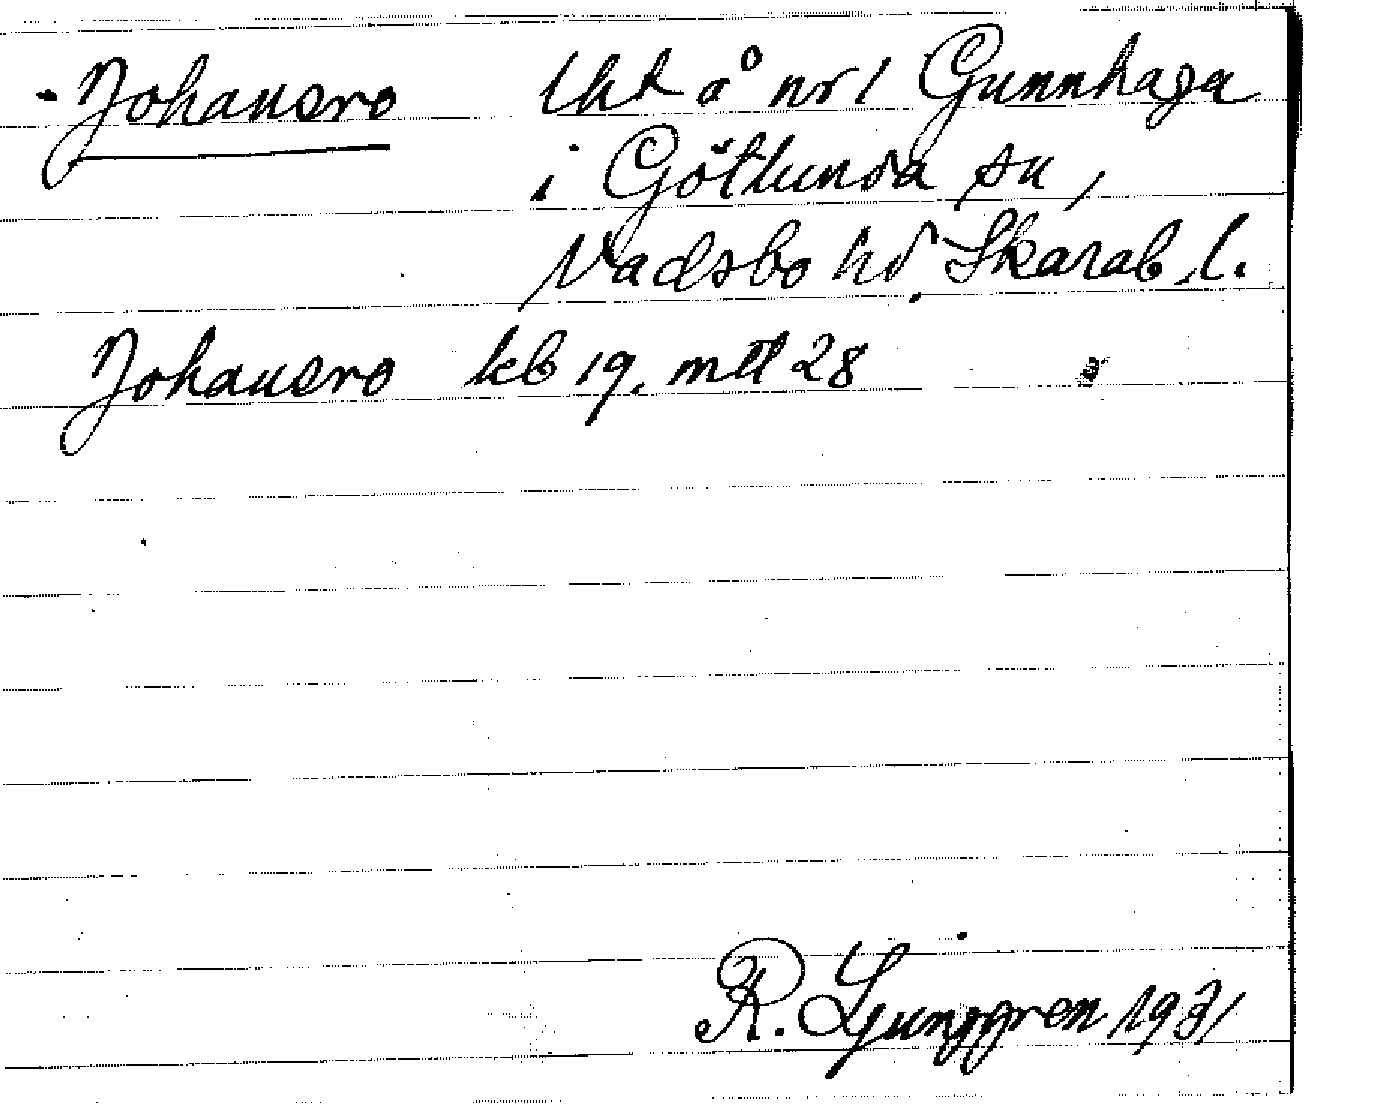 - Johansro lht å nr 1 Gunnhaga
i Götlunda sn,
Vadsbo hd. Skarab. l.
Johansro kb 19. mtl 28
R. Ljunggren 1931